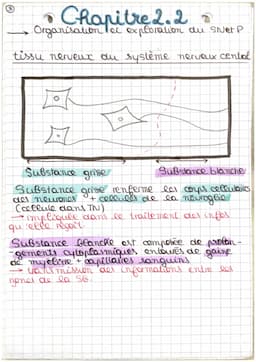 Chapitre 2.2
→ Organisation et exploration du SN et P
tissu nerveux du système nerveux central
Substance grise
Substance blanche
Substance grise renferme les corps cellulaires
des neurones + cellules de la névroglie
(cellule dans TN)
→ impliquée dans le traitement des infos
qu'elle reçoit
Substance blanche est composée de prolon-
gements cytoplasmiques entourés de gaine
de myéline + capillaires sanguins
→ transmission des informations entre les
zones de la SG.